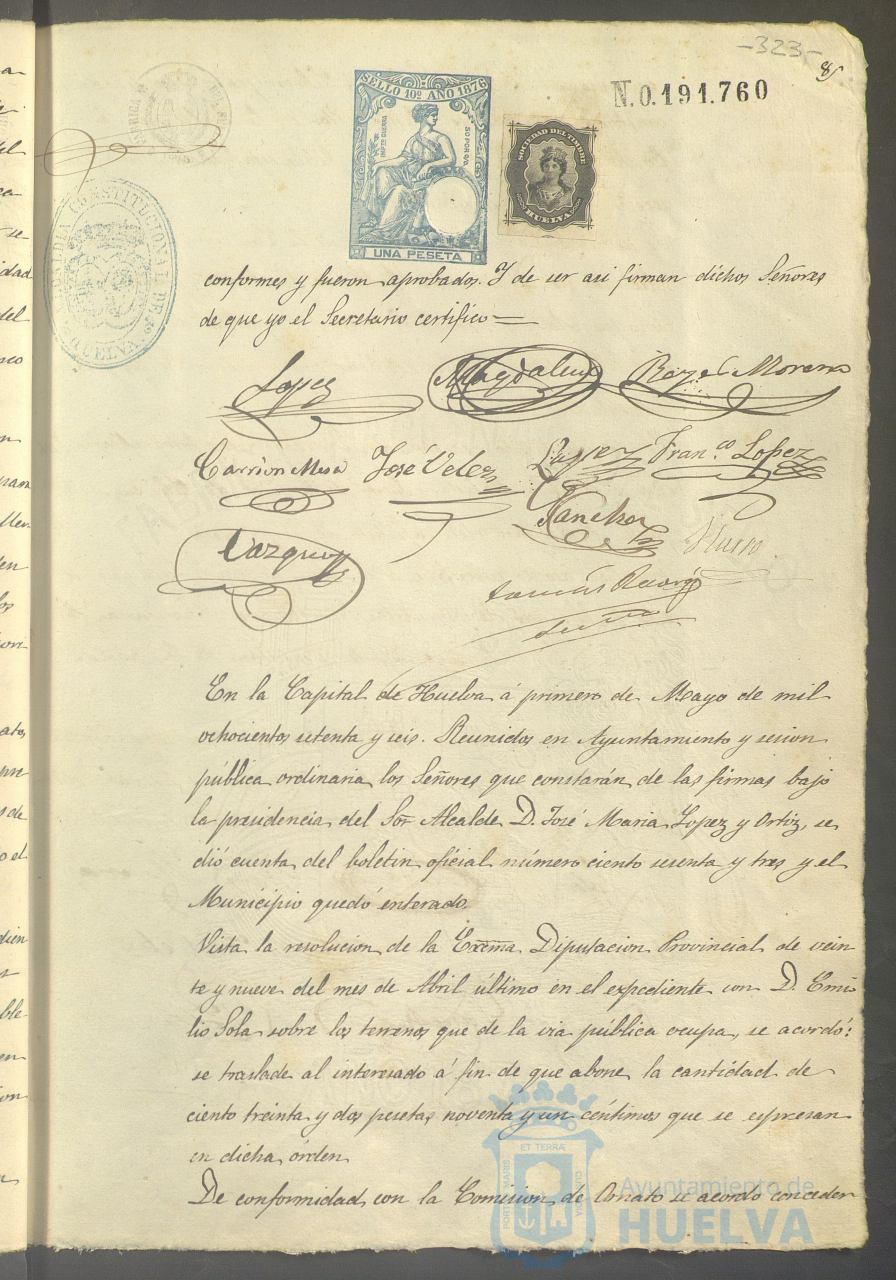 -323-
8
N.0.191.760
SELLO 10º AÑO 1876
IMPTO GUERRA
50 POR 0/0
UNA PESETA
SOCIEDAD DEL TIMBRE
HUELVA
ALCALDIA CONSTITUCIONAL DE
HUELVA
conformes y fueron aprobados. Y de ser asi firman dichos Señores
de que yo el Secretario certifico=
Lopez Magdalena Roza Moreno
Carrion Mesa José Velez Lopez Fran.co Lopez
Sanchez
Vazquez
En la Capital de Huelva á primero de Mayo de mil
ochocientos setenta y seis. Reunidos en Ayuntamiento y sesion
pública ordinaria los Señores que constarán de las firmas bajo
la presidencia del Sor Alcalde D. José Maria Lopez y Ortiz, se
dió cuenta del boletin oficial número ciento sesenta y tres y el
Municipio quedó enterado.
Vista la resolucion de la Excma Diputacion Provincial de vein
te y nueve del mes de Abril último en el expediente con D. Emi
lio Sola sobre los terrenos que de la via pública ocupa, se acordó:
se traslade al interesado á fin de que abone la cantidad de
ciento treinta y dos pesetas noventa y un céntimos que se espresan
en dicha órden
De conformidad con la Comision de Ornato se acordo conceder
PORTUS MARIS ET TERRAE CUSTODIA
Ayuntamiento de
HUELVA